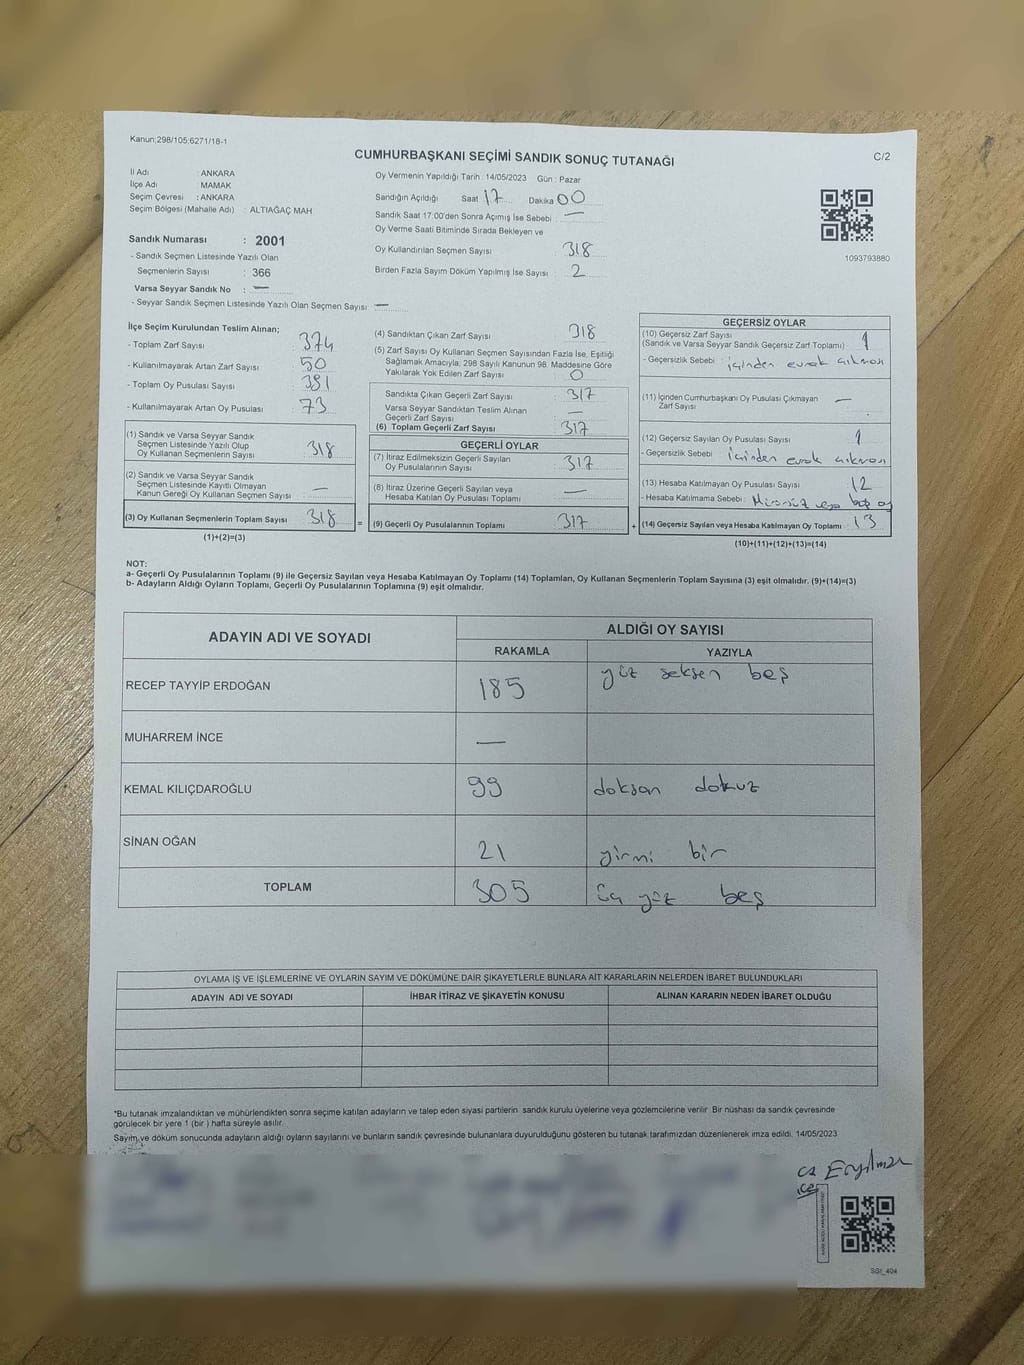 Kanun;298/105;6271/18-1
CUMHURBAŞKANI SEÇİMİ SANDIK SONUÇ TUTANAĞI
C/2
İl Adı : ANKARA
İlçe Adı : MAMAK
Seçim Çevresi : ANKARA
Seçim Bölgesi (Mahalle Adı) : ALTIAĞAÇ MAH
Sandık Numarası : 2001
- Sandık Seçmen Listesinde Yazılı Olan
Seçmenlerin Sayısı : 366
Varsa Seyyar Sandık No : —
- Seyyar Sandık Seçmen Listesinde Yazılı Olan Seçmen Sayısı: —
Oy Vermenin Yapıldığı Tarih : 14/05/2023 Gün : Pazar
Sandığın Açıldığı Saat 17 Dakika 00
Sandık Saat 17:00'den Sonra Açılmış İse Sebebi : —
Oy Verme Saati Bitiminde Sırada Bekleyen ve
Oy Kullandırılan Seçmen Sayısı : 318
Birden Fazla Sayım Döküm Yapılmış İse Sayısı : 2
1093793880
İlçe Seçim Kurulundan Teslim Alınan;
- Toplam Zarf Sayısı : 374
- Kullanılmayarak Artan Zarf Sayısı : 50
- Toplam Oy Pusulası Sayısı : 391
- Kullanılmayarak Artan Oy Pusulası : 73
(1) Sandık ve Varsa Seyyar Sandık
Seçmen Listesinde Yazılı Olup
Oy Kullanan Seçmenlerin Sayısı : 318
(2) Sandık ve Varsa Seyyar Sandık
Seçmen Listesinde Kayıtlı Olmayan
Kanun Gereği Oy Kullanan Seçmen Sayısı : —
(3) Oy Kullanan Seçmenlerin Toplam Sayısı : 318
(1)+(2)=(3)
=
(4) Sandıktan Çıkan Zarf Sayısı : 318
(5) Zarf Sayısı Oy Kullanan Seçmen Sayısından Fazla İse, Eşitliği
Sağlamak Amacıyla, 298 Sayılı Kanunun 98. Maddesine Göre
Yakılarak Yok Edilen Zarf Sayısı : 0
Sandıkta Çıkan Geçerli Zarf Sayısı : 317
Varsa Seyyar Sandıktan Teslim Alınan
Geçerli Zarf Sayısı : —
(6) Toplam Geçerli Zarf Sayısı : 317
GEÇERLİ OYLAR
(7) İtiraz Edilmeksizin Geçerli Sayılan
Oy Pusulalarının Sayısı : 317
(8) İtiraz Üzerine Geçerli Sayılan veya
Hesaba Katılan Oy Pusulası Toplamı : —
(9) Geçerli Oy Pusulalarının Toplamı : 317
+
GEÇERSİZ OYLAR
(10) Geçersiz Zarf Sayısı
(Sandık ve Varsa Seyyar Sandık Geçersiz Zarf Toplamı) : 1
- Geçersizlik Sebebi : içinden evrak çıkman
(11) İçinden Cumhurbaşkanı Oy Pusulası Çıkmayan
Zarf Sayısı : —
(12) Geçersiz Sayılan Oy Pusulası Sayısı : 1
- Geçersizlik Sebebi : içinden evrak çıkman
(13) Hesaba Katılmayan Oy Pusulası Sayısı : 12
- Hesaba Katılmama Sebebi : Mühürsüz veya boş oy
(14) Geçersiz Sayılan veya Hesaba Katılmayan Oy Toplamı : 13
(10)+(11)+(12)+(13)=(14)
NOT:
a- Geçerli Oy Pusulalarının Toplamı (9) ile Geçersiz Sayılan veya Hesaba Katılmayan Oy Toplamı (14) Toplamları, Oy Kullanan Seçmenlerin Toplam Sayısına (3) eşit olmalıdır. (9)+(14)=(3)
b- Adayların Aldığı Oyların Toplamı, Geçerli Oy Pusulalarının Toplamına (9) eşit olmalıdır.
ADAYIN ADI VE SOYADI ALDIĞI OY SAYISI
RAKAMLA YAZIYLA
RECEP TAYYİP ERDOĞAN 185 yüz seksen beş
MUHARREM İNCE —
KEMAL KILIÇDAROĞLU 99 doksan dokuz
SİNAN OĞAN 21 yirmi bir
TOPLAM 305 üç yüz beş
OYLAMA İŞ VE İŞLEMLERİNE VE OYLARIN SAYIM VE DÖKÜMÜNE DAİR ŞİKAYETLERLE BUNLARA AİT KARARLARIN NELERDEN İBARET BULUNDUKLARI
ADAYIN ADI VE SOYADI İHBAR İTİRAZ VE ŞİKAYETİN KONUSU ALINAN KARARIN NEDEN İBARET OLDUĞU
*Bu tutanak imzalandıktan ve mühürlendikten sonra seçime katılan adayların ve talep eden siyasi partilerin sandık kurulu üyelerine veya gözlemcilerine verilir. Bir nüshası da sandık çevresinde
görülecek bir yere 1 (bir) hafta süreyle asılır.
Sayım ve döküm sonucunda adayların aldığı oyların sayılarını ve bunların sandık çevresinde bulunanlara duyurulduğunu gösteren bu tutanak tarafımızdan düzenlenerek imza edildi. 14/05/2023
SGI_404